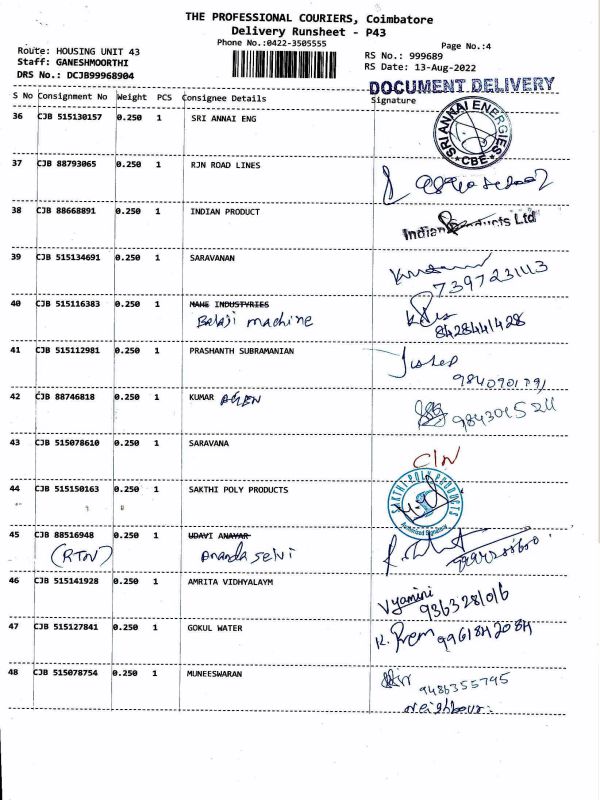 THE PROFESSIONAL COURIERS, Coimbatore
Delivery Runsheet - P43
Phone No.:0422-3505555
Page No.:4
Route: HOUSING UNIT 43
RS No.: 999689
Staff: GANESHMOORTHI
RS Date: 13-Aug-2022
DRS No.: DCJB99968904
DOCUMENT DELIVERY
S No Consignment No Weight PCS Consignee Details Signature
36 CJB 515130157 0.250 1 SRI ANNAI ENG
SRI ANNAI ENERGIES
CBE
37 CJB 88793065 0.250 1 RJN ROAD LINES
38 CJB 88668891 0.250 1 INDIAN PRODUCT
Indian Products Ltd
39 CJB 515134691 0.250 1 SARAVANAN
7397231113
40 CJB 515116383 0.250 1 MAHE INDUSTYRIES
Balaji machine
8428441428
41 CJB 515112981 0.250 1 PRASHANTH SUBRAMANIAN
42 CJB 88746818 0.250 1 KUMAR
43 CJB 515078610 0.250 1 SARAVANA
C/N
44 CJB 515150163 0.250 1 SAKTHI POLY PRODUCTS
SAKTHI POLY PRODUCTS
Authorised Signatory
45 CJB 88516948 0.250 1 UDAVI ANAYAR
(RTN) Ananda selvi
46 CJB 515141928 0.250 1 AMRITA VIDHYALAYM
Vyamini
9363281016
47 CJB 515127841 0.250 1 GOKUL WATER
K. Prem 9961842084
48 CJB 515078754 0.250 1 MUNEESWARAN
9486355795
neighbour.